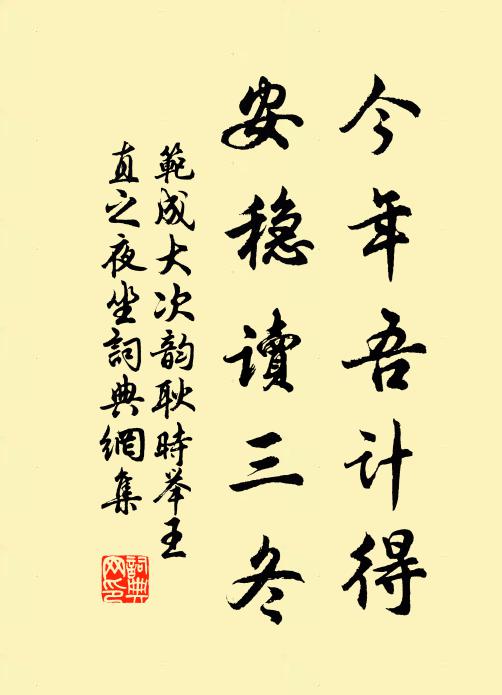 今年吾计得
安稳读三冬
範成大次韵耿時举王
直之夜坐詞典網集
詞典
网印